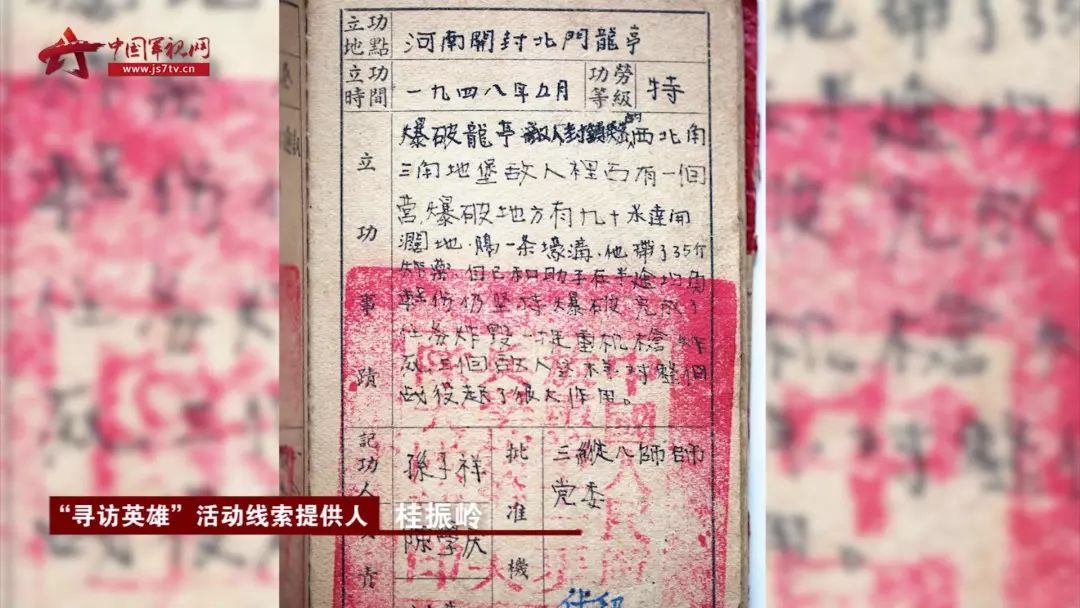 中国军视网
www.js7tv.cn
立功地點 河南開封北門龍亭
立功時間 一九四八年五月 功勞等級 特
立功事蹟
爆破龍亭敵人封鎖的西北角
三角地堡敌人裡面有一個
营,爆破地方有九十米達開
濶地,隔一条壕溝,他帶了35斤
炸藥,自己和助手在半途均负
輕伤仍坚持爆破完成了
任务炸毁一挺重机槍炸
死三個敌人 对整個
战役起了很大作用。
記功人負責
孫子祥
陳學庆
批准機
三縱八師師
党委
“寻访英雄”活动线索提供人 桂振岭